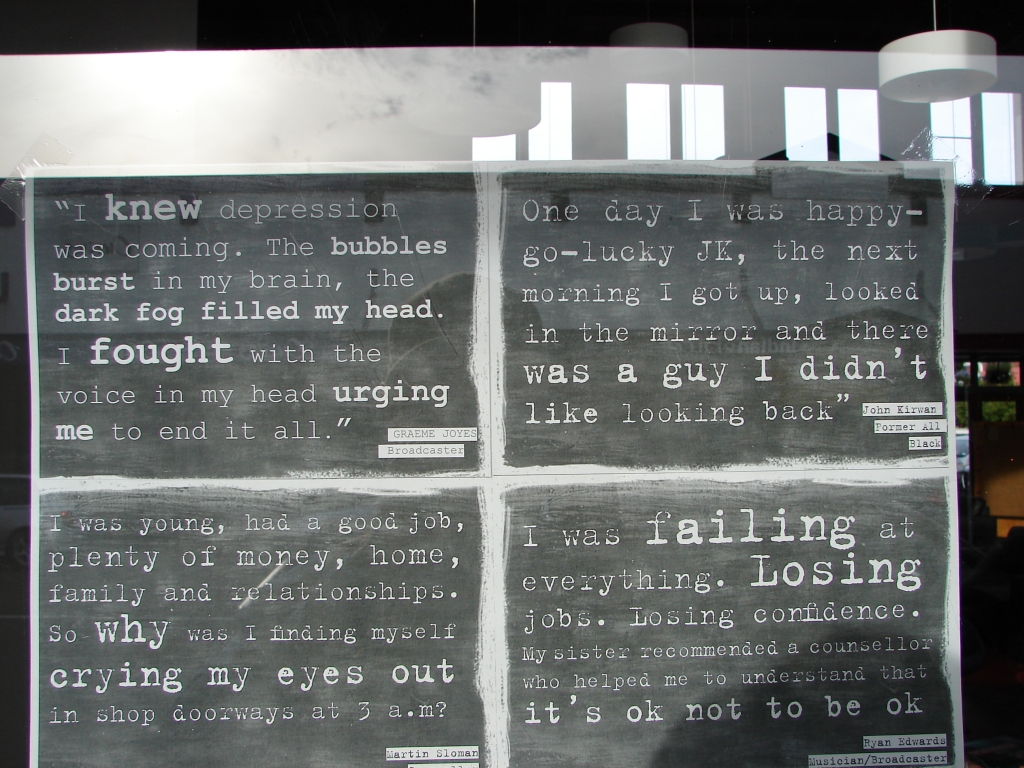 "I knew depression
was coming. The bubbles
burst in my brain, the
dark fog filled my head.
I fought with the
voice in my head urging
me to end it all."
GRAEME JOYES
Broadcaster
One day I was happy-
go-lucky JK, the next
morning I got up, looked
in the mirror and there
was a guy I didn't
like looking back"
John Kirwan
Former All
Black
I was young, had a good job,
plenty of money, home,
family and relationships.
So why was I finding myself
crying my eyes out
in shop doorways at 3 a.m?
Martin Sloman
I was failing at
everything. Losing
jobs. Losing confidence.
My sister recommended a counsellor
who helped me to understand that
it's ok not to be ok
Ryan Edwards
Musician/Broadcaster